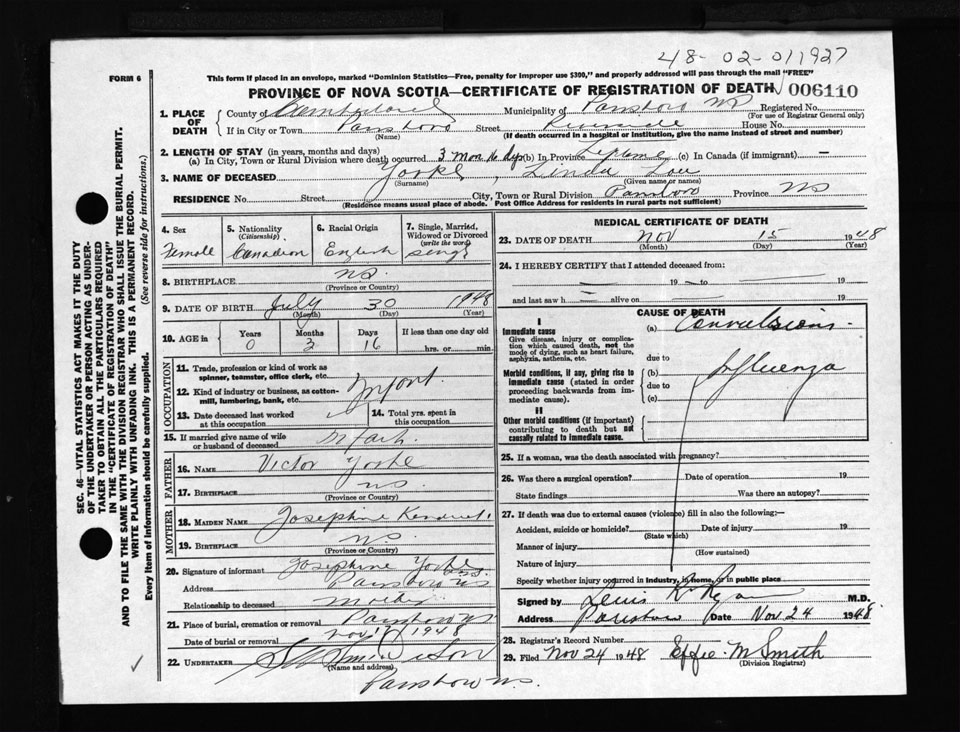 48-02-011927
FORM 6
This form if placed in an envelope, marked "Dominion Statistics—Free, penalty for improper use $300," and properly addressed will pass through the mail "FREE"
PROVINCE OF NOVA SCOTIA—CERTIFICATE OF REGISTRATION OF DEATH 006110
1. PLACE OF DEATH
County of Cumberland Municipality of Parrsboro NS Registered No.
(For use of Registrar General only)
If in City or Town Parrsboro Street Riverside House No.
(Name) (If death occurred in a hospital or institution, give the name instead of street and number)
2. LENGTH OF STAY (in years, months and days)
(a) In City, Town or Rural Division where death occurred 3 mon 16 dys (b) In Province Lifetime (c) In Canada (if immigrant) —
3. NAME OF DECEASED Yorke, Linda Lou
(Surname) (Given name or names)
RESIDENCE No. Street City, Town or Rural Division Parrsboro Province NS
(Residence means usual place of abode. Post Office Address for residents in rural parts not sufficient)
4. Sex Female
5. Nationality (Citizenship) Canadian
6. Racial Origin English
7. Single, Married, Widowed or Divorced (write the word) Single
8. BIRTHPLACE NS.
(Province or Country)
9. DATE OF BIRTH July 30 1948
(Month) (Day) (Year)
10. AGE in Years Months Days If less than one day old
0 3 16 hrs. or min.
OCCUPATION
11. Trade, profession or kind of work as spinner, teamster, office clerk, etc.
12. Kind of industry or business, as cotton-mill, lumbering, bank, etc. Infant.
13. Date deceased last worked at this occupation
14. Total yrs. spent in this occupation
15. If married give name of wife or husband of deceased Infant
FATHER
16. NAME Victor Yorke
17. BIRTHPLACE NS
(Province or Country)
MOTHER
18. MAIDEN NAME Josephine
19. BIRTHPLACE NS.
(Province or Country)
20. Signature of informant Josephine Yorke
Address Parrsboro NS
Relationship to deceased mother
21. Place of burial, cremation or removal Parrsboro NS
Date of burial or removal Nov 17 1948
22. UNDERTAKER & Son
(Name and address)
Parrsboro NS.
MEDICAL CERTIFICATE OF DEATH
23. DATE OF DEATH Nov 15 1948
(Month) (Day) (Year)
24. I HEREBY CERTIFY that I attended deceased from:
19 to 19
and last saw h alive on 19
CAUSE OF DEATH
I
Immediate cause
Give disease, injury or complication which caused death, not the mode of dying, such as heart failure, asphyxia, asthenia, etc.
(a) Convulsions.
due to
Morbid conditions, if any, giving rise to immediate cause (stated in order proceeding backwards from immediate cause).
(b) Influenza
due to
(c)
II
Other morbid conditions (if important) contributing to death but not causally related to immediate cause.
25. If a woman, was the death associated with pregnancy?
26. Was there a surgical operation? Date of operation 19
State findings Was there an autopsy?
27. If death was due to external causes (violence) fill in also the following:—
Accident, suicide or homicide? Date of injury 19
(State which)
Manner of injury
(How sustained)
Nature of injury
Specify whether injury occurred in industry, in home, or in public place
Signed by M.D.
Address Parrsboro Date Nov 24 1948
28. Registrar's Record Number
29. Filed Nov 24 1948 Effie M Smith
(Division Registrar)
SEC. 46—VITAL STATISTICS ACT MAKES IT THE DUTY
OF THE UNDERTAKER OR PERSON ACTING AS UNDER-
TAKER TO OBTAIN ALL THE PARTICULARS REQUIRED
IN THE "CERTIFICATE OF REGISTRATION OF DEATH"
AND TO FILE THE SAME WITH THE DIVISION REGISTRAR WHO SHALL ISSUE THE BURIAL PERMIT.
WRITE PLAINLY WITH UNFADING INK. THIS IS A PERMANENT RECORD.
Every item of information should be carefully supplied. (See reverse side for instructions.)